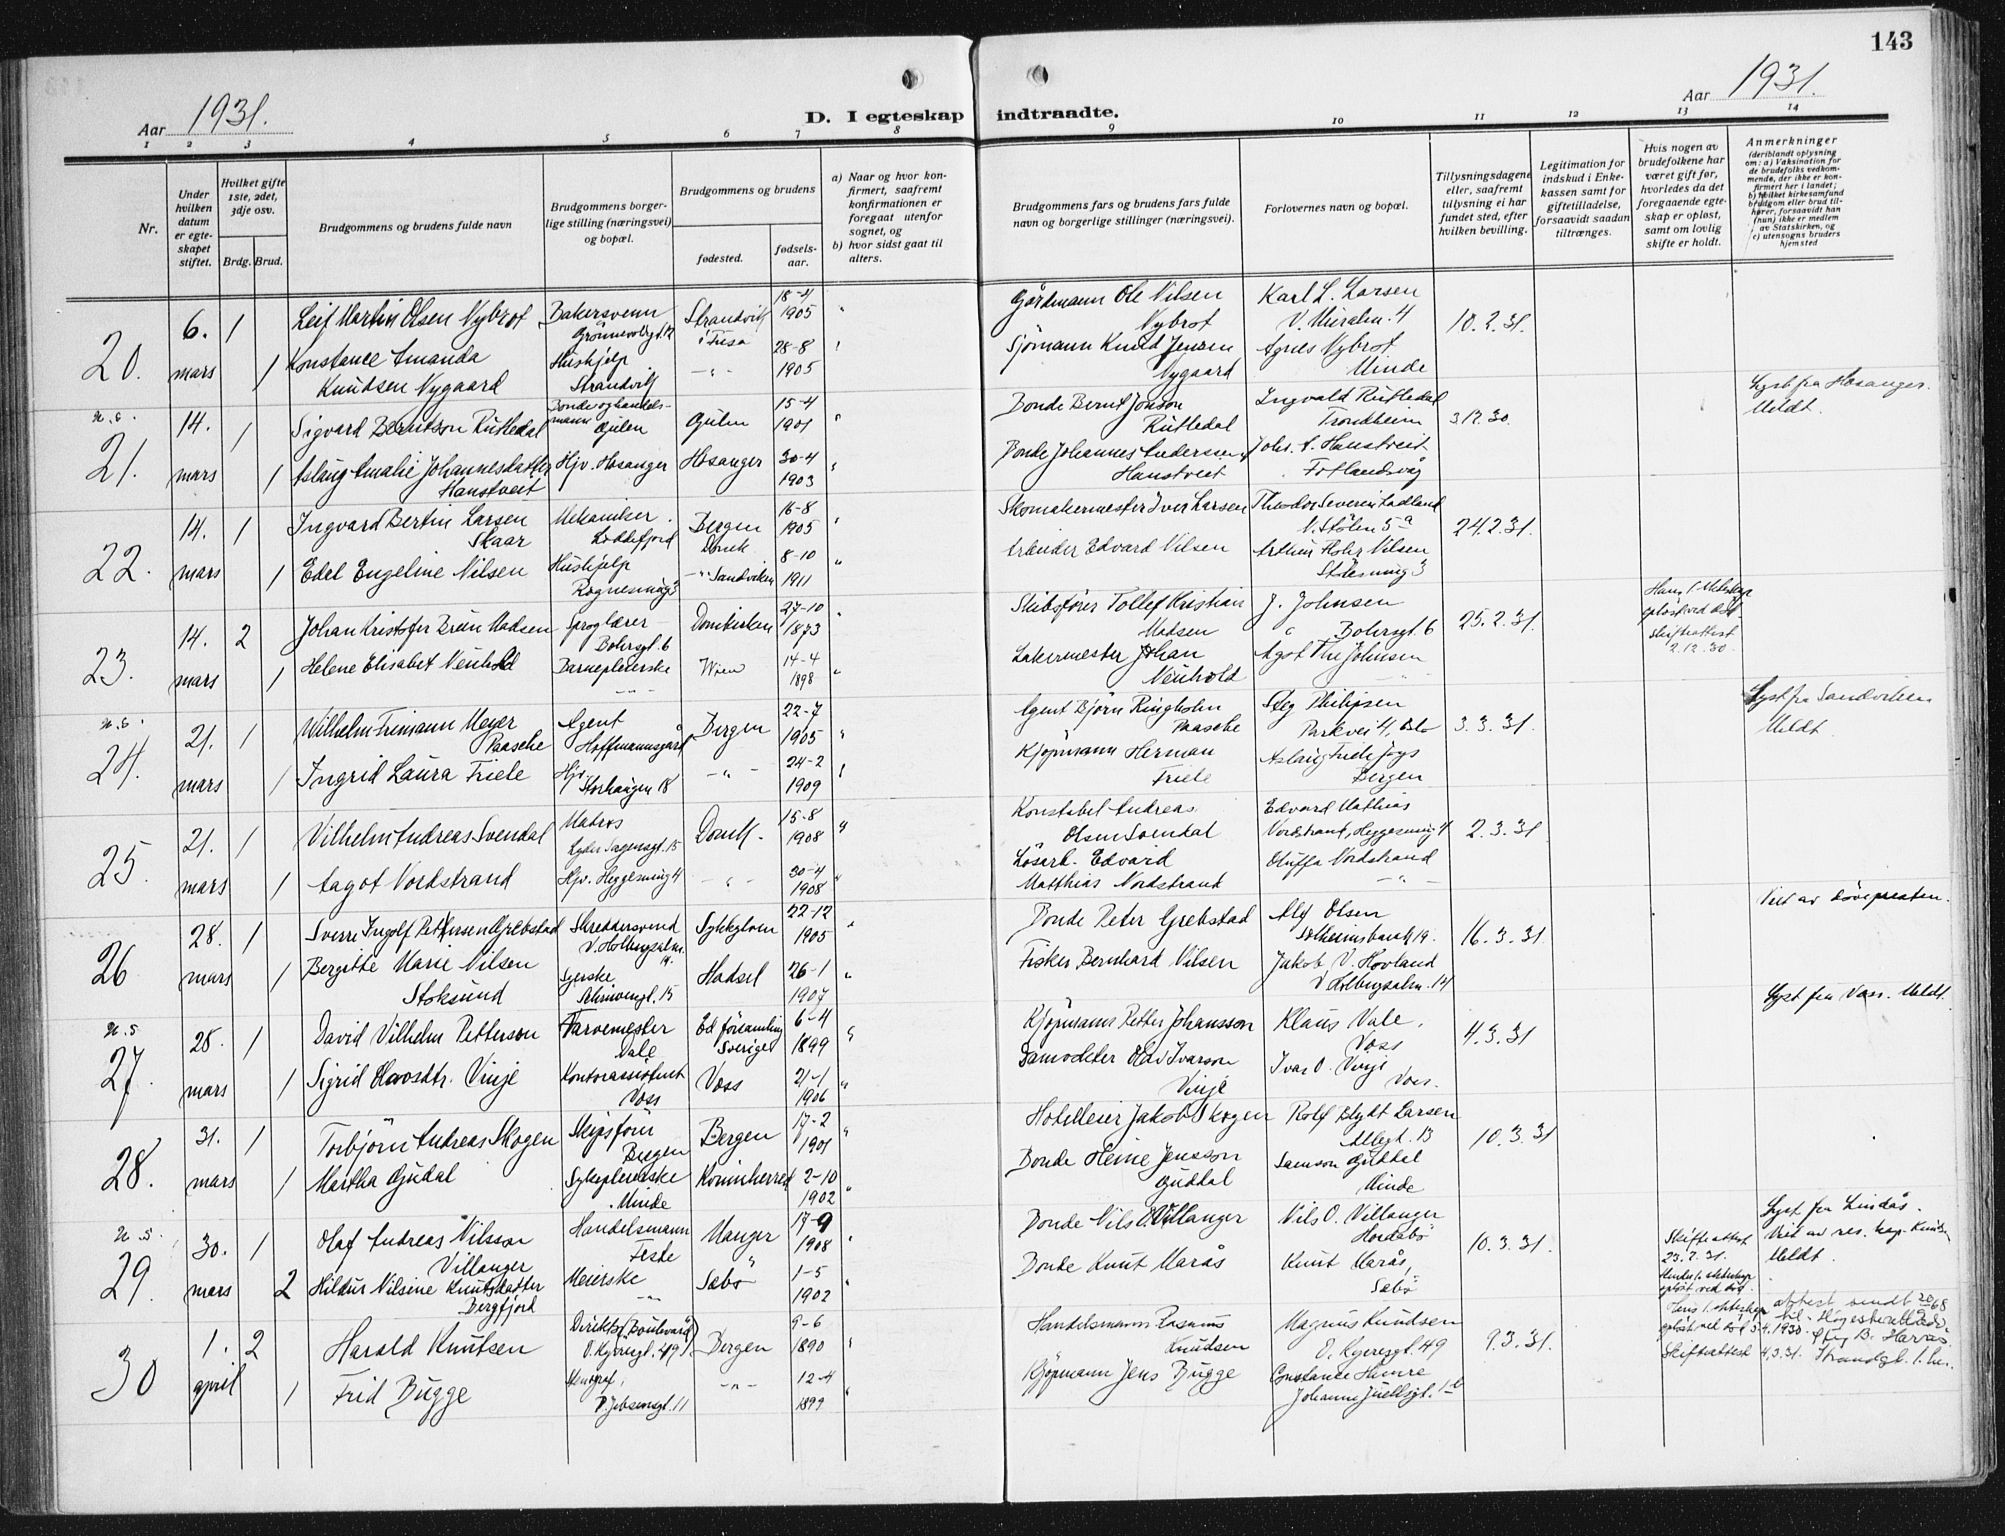 143
Aar 1931.
D. I egteskap indtraadte.
Aar 1931.
1 2 3 4 5 6 7 8 9 10 11 12 13 14
Nr.
Under hvilken datum er egte-skapet stiftet.
Hvilket gifte 1ste, 2det, 3dje osv.
Brdg. Brud.
Brudgommens og brudens fulde navn
Brudgommens borger-lige stilling (næringsvei) og bopæl.
Brudgommens og brudens
fødested.
fødsels-aar.
a) Naar og hvor kon-firmert, saafremt konfirmationen er foregaat utenfor sognet, og
b) hvor sidst gaat til alters.
Brudgommens fars og brudens fars fulde navn og borgerlige stillinger (næringsvei).
Forlovernes navn og bopæl.
Tillysningsdagene eller, saafremt tillysning ei har fundet sted, efter hvilken bevilling.
Legitimation for indskud i Enke-kassen samt for giftetilladelse, forsaavidt saadan tiltrænges.
Hvis nogen av brudefolkene har været gift før, hvorledes da det foregaaende egte-skap er opløst, samt om lovlig skifte er holdt.
Anmerkninger
(deriblandt oplysning om: a) Vaksination for de brudefolks vedkom-mende, der ikke er kon-firmert her i landet; b) hvilket kirkesamfund brudgom eller brud til-hører, forsaavidt han (hun) ikke er medlem av Statskirken, og c) utensogns bruders hjemsted
20. 6. mars 1 Leif Martin Olsen Nybrot Bakersvenn Strandvik i Fusa 18-4 1905 Ole Nilsen Nybrot Karl L. Larsen 10.2.31.
1 Konstance Amanda Knudsen Nygaard Hushjelp Strandvik 28-8 1905 Sjömann Knud Jensen Nygaard Agnes Nybrot Minde
n.s. 21. 14. mars 1 Sigvard Berntson Rutledal Bonde og handels-mann Gulen Gulen 15-4 1901 Bonde Bernt Jonson Rutledal Ingvald Rutledal Trondheim 3.12.30. Lyst fra Hosanger. Meldt.
1 Aslaug Amalie Johannesdatter Hanstveit Hjv. Hosanger Hosanger 30-4 1903 Bonde Johannes Anderssen Hanstveit Johs. A. Hanstveit Fotlandsvåg
22. 14. mars 1 Ingvard Bertin Larsen Skaar Mekaniker. Loddefjord Bergen Domk 16-8 1905 Skomakermester Iver Larsen Theodor Severin Ladland N. Stölen 5a 24.2.31.
1 Edel Engeline Nilsen Hushjelp Rognesmug 3 Sandviken 8-10 1911 Arbeider Edvard Nilsen Nilsen
23. 14. mars 2 Johan Kristofer Brun Madsen Sproglærer Bohrsgt. 6 Domkirken 27-10 1873 Skibsförer Tollef Kristian Madsen J. Johnsen Bohrsgt. 6 25.2.31. Skifteattest 2.12.30.
1 Helene Elisabet Neuhold Barnepleierske Wien 14-4 1898 Lakermester Johan Neuhold Johnsen
n.s. 24. 21. mars 1 Wilhelm Frimann Meyer Paasche Agent Hoffmannsgård Bergen 22-7 1905 Agent Björn Ringholm Paasche Philipsen Parkvei 4, Oslo 3.3.31. Lyst fra Sandviken Meldt.
1 Ingrid Laura Friele Hjv. Storhaugen 18 24-2 1909 Kjöpmann Herman Friele Bergen
25. 21. mars 1 Vilhelm Andreas Svendal Matros Lyder Sagensgt. 15 Domk. 15-8 1908 Konstabel Andreas Olsen Svendal Edvard Mathias Nordstrand, Heggesmug 4 2.3.31
1 Aagot Nordstrand Hjv. Heggesmug 4 30-4 1908 Lösarb. Edvard Matthias Nordstrand Oluffa Nordstrand
26 28. mars 1 Sverre Ingolf Grebstad Skreddersvend V. Holbergsalm. 14. Sykkylven 22-12 1905 Bonde Peter Grebstad Alf Olsen Solheimsbakk 19. 16.3.31. Viet av dövepresten.
1 Bergitte Marie Nilsen Stoksund Syerske. 15 Hadsel 26-1 1907 Fisker Bernhard Nilsen Jakob V. Hovland V Holbergsalm. 14
n.s 27. 28. mars 1 David Vilhelm Petterson Farvemester Dale Ed församling Sverige 6-4 1899 Kjöpmann Petter Johansson Klaus Vale. Voss 4.3.31 Lyst fra Voss. Meldt.
1 Sigrid Olavsdtr. Vinje Kontorassistent Voss Voss 21-1 1906 Olav Ivarson Vinje Ivar O. Vinje Voss.
28. 31. mars 1 Torbjörn Andreas Skogen Skipsförer Bergen Bergen 17-2 1901 Hotelleier Jakob Skogen Rolf Blydt Larsen Allegt. 13 10.3.31
1 Martha Gjudal Sykepleierske Minde Kvinnherred 2-10 1902 Bonde Heine Jensson Guddal Samson Guddal Minde
n.s. 29. 30. mars 1 Olaf Andreas Nilsson Villanger Handelsmann Feste Manger 17-9 1908 Bonde Nils O. Villanger Nils O. Villanger Hordabö 10.3.31. Skifteattest 23.2.31. Lyst fra Lindås. Viet av res. kap. Meldt.
2 Hildur Nilsine Knutsdatter Bergfjord Meierske Sæbö 1-5 1902 Bonde Knut Marås Knut Marås, Sæbö
30 1. april 2 Harald Knutsen Direktör (Boulevard) Ö. Kjeresgt. 49 Bergen 9-6 1890 Handelsmann Rasmus Knudsen Magnus Knudsen Ö. Kjeresgt. 49 9.3.31. Skifteattest 4.3.31. attest sendt
1 Frid Bugge V. Jebsensgt. 11 12-4 1899 Kjöpmann Jens Bugge Constance Hamre